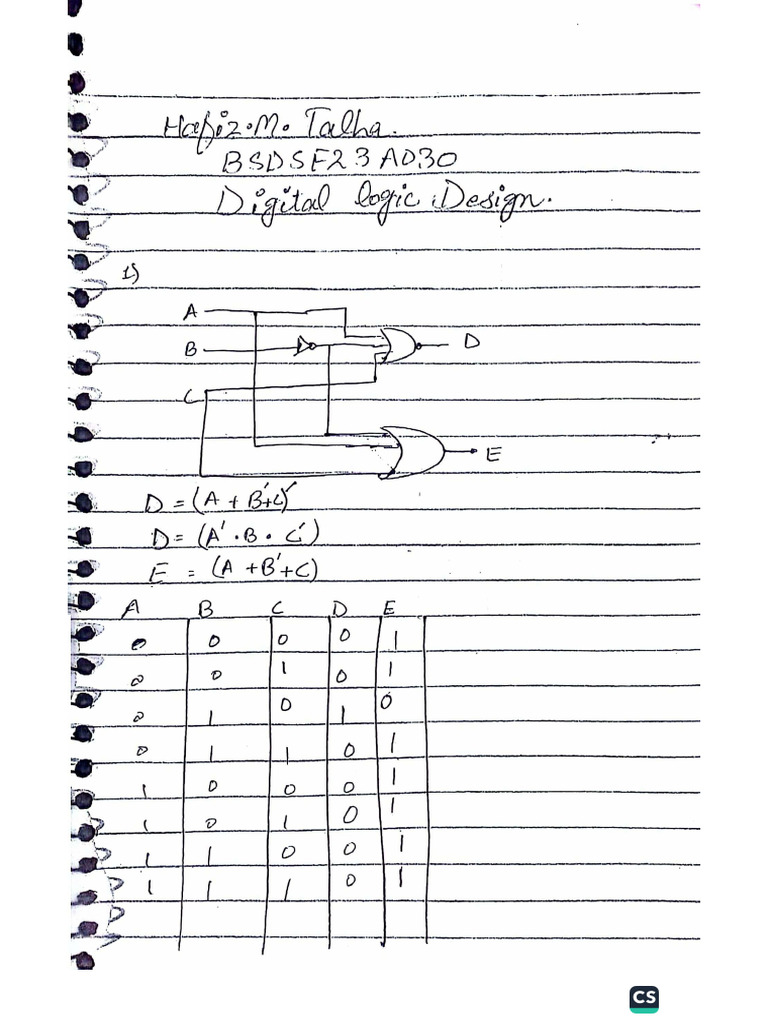 Hafiz.M. Talha.
BSDSF23A030
Digital logic Design.
1)
A
B
D
C
E
D = (A + B'+C)'
D = (A' . B . C')
E = (A + B' + C)
A B C D E
0 0 0 0 1
0 0 1 0 1
0 1 0 1 0
0 1 1 0 1
1 0 0 0 1
1 0 1 0 1
1 1 0 0 1
1 1 1 0 1
CS